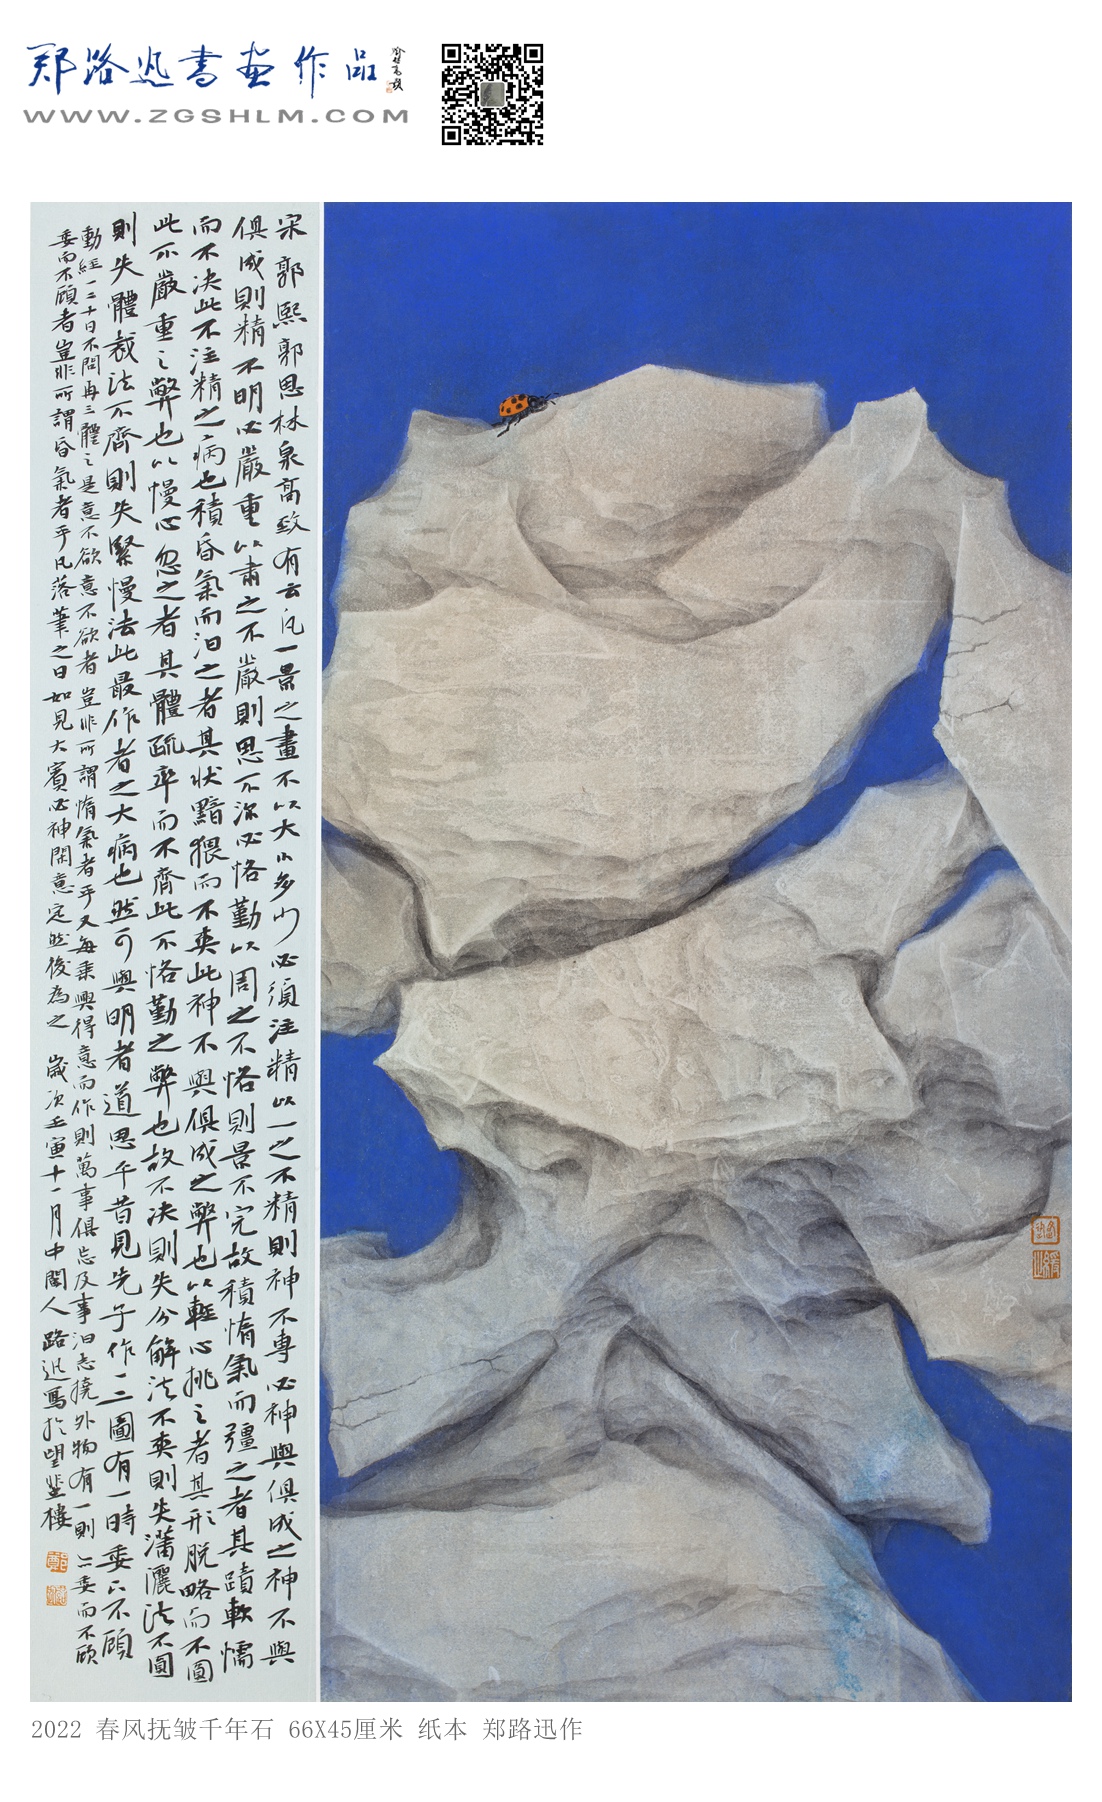 郑路迅書画作品
WWW.ZGSHLM.COM
宋郭熙郭思林泉高致有云凡一景之畫不以大小多少必須注精以一之不精則神不專必神與俱成之神不與
俱成則精不明必嚴重以肅之不嚴則思不深必恪勤以周之不恪則景不完故積惰氣而彊之者其蹟軟懦
而不决此不注精之病也積昏氣而汩之者其狀黯猥而不爽此神不與俱成之弊也以輕心挑之者其形脱略而不圓
此不嚴重之弊也以慢心忽之者其體疏率而不齊此不恪勤之弊也故不决則失分解法不爽則失瀟灑法不圓
則失體裁法不齊則失緊慢法此最作者之大病也然可與明者道思平昔見先子作一二圖有一時委下不顧
動經一二十日不問再三體之是意不欲意不欲者豈非所謂惰氣者乎又每乘興得意而作則萬事俱忘及事汩志撓外物有一則亦委而不顧
委而不顧者豈非所謂昏氣者乎凡落筆之日如見大賓必神閑意定然後為之 歲次壬寅十一月中閩人路迅寫於望 樓
2022 春风抚皱千年石 66X45厘米 纸本 郑路迅作